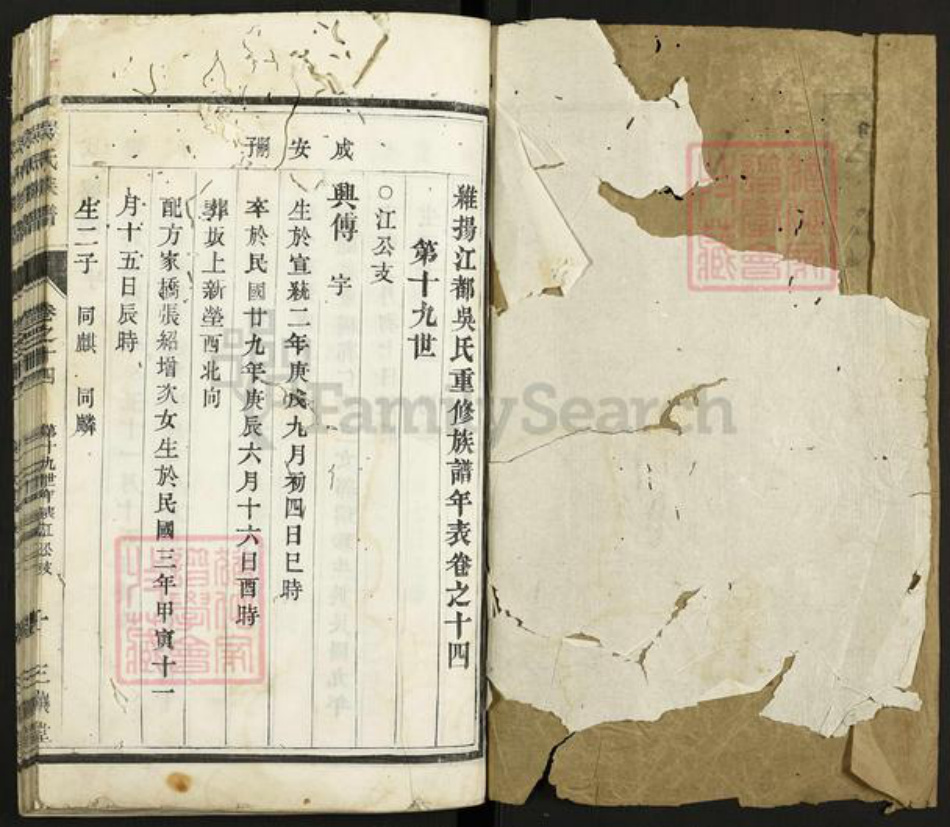 維揚江都吳氏重修族譜年表卷之十四
第十九世
○江公支
成 興傅 字
安 生於宣統二年庚戌九月初四日巳時
嗣子 卒於民國廿九年庚辰六月十六日酉時
葬坂上新塋西北向
配方家橋張紹增次女生於民國三年甲寅十一
月十五日辰時
生二子 同麒 同麟
吳氏族譜 卷之十四 第十九世年表江公支 一 三讓堂
FamilySearch